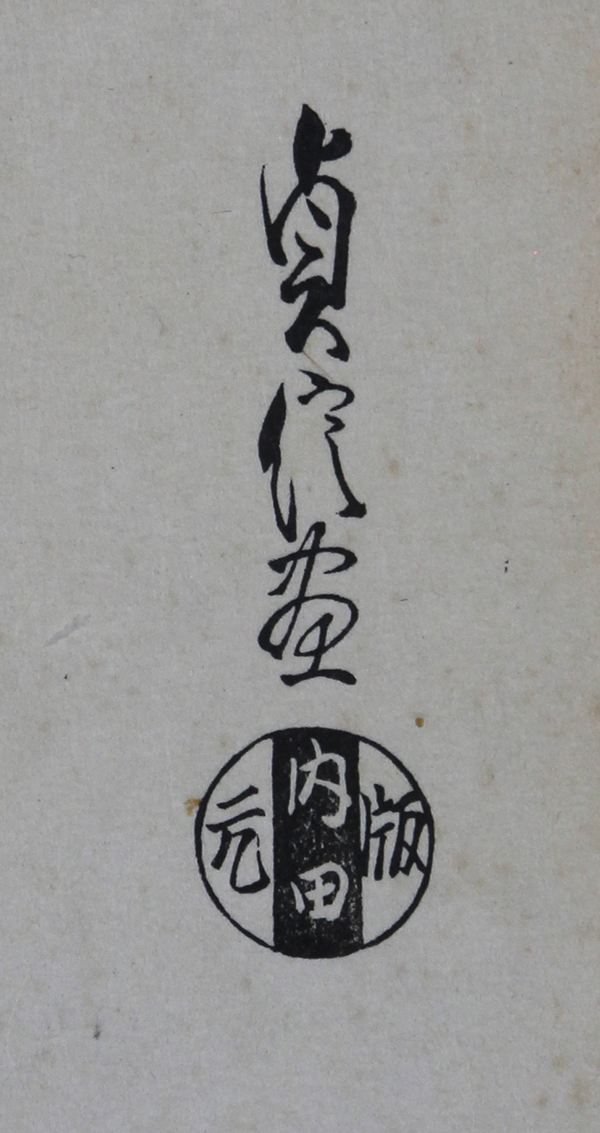 貞信画
版
内田
元